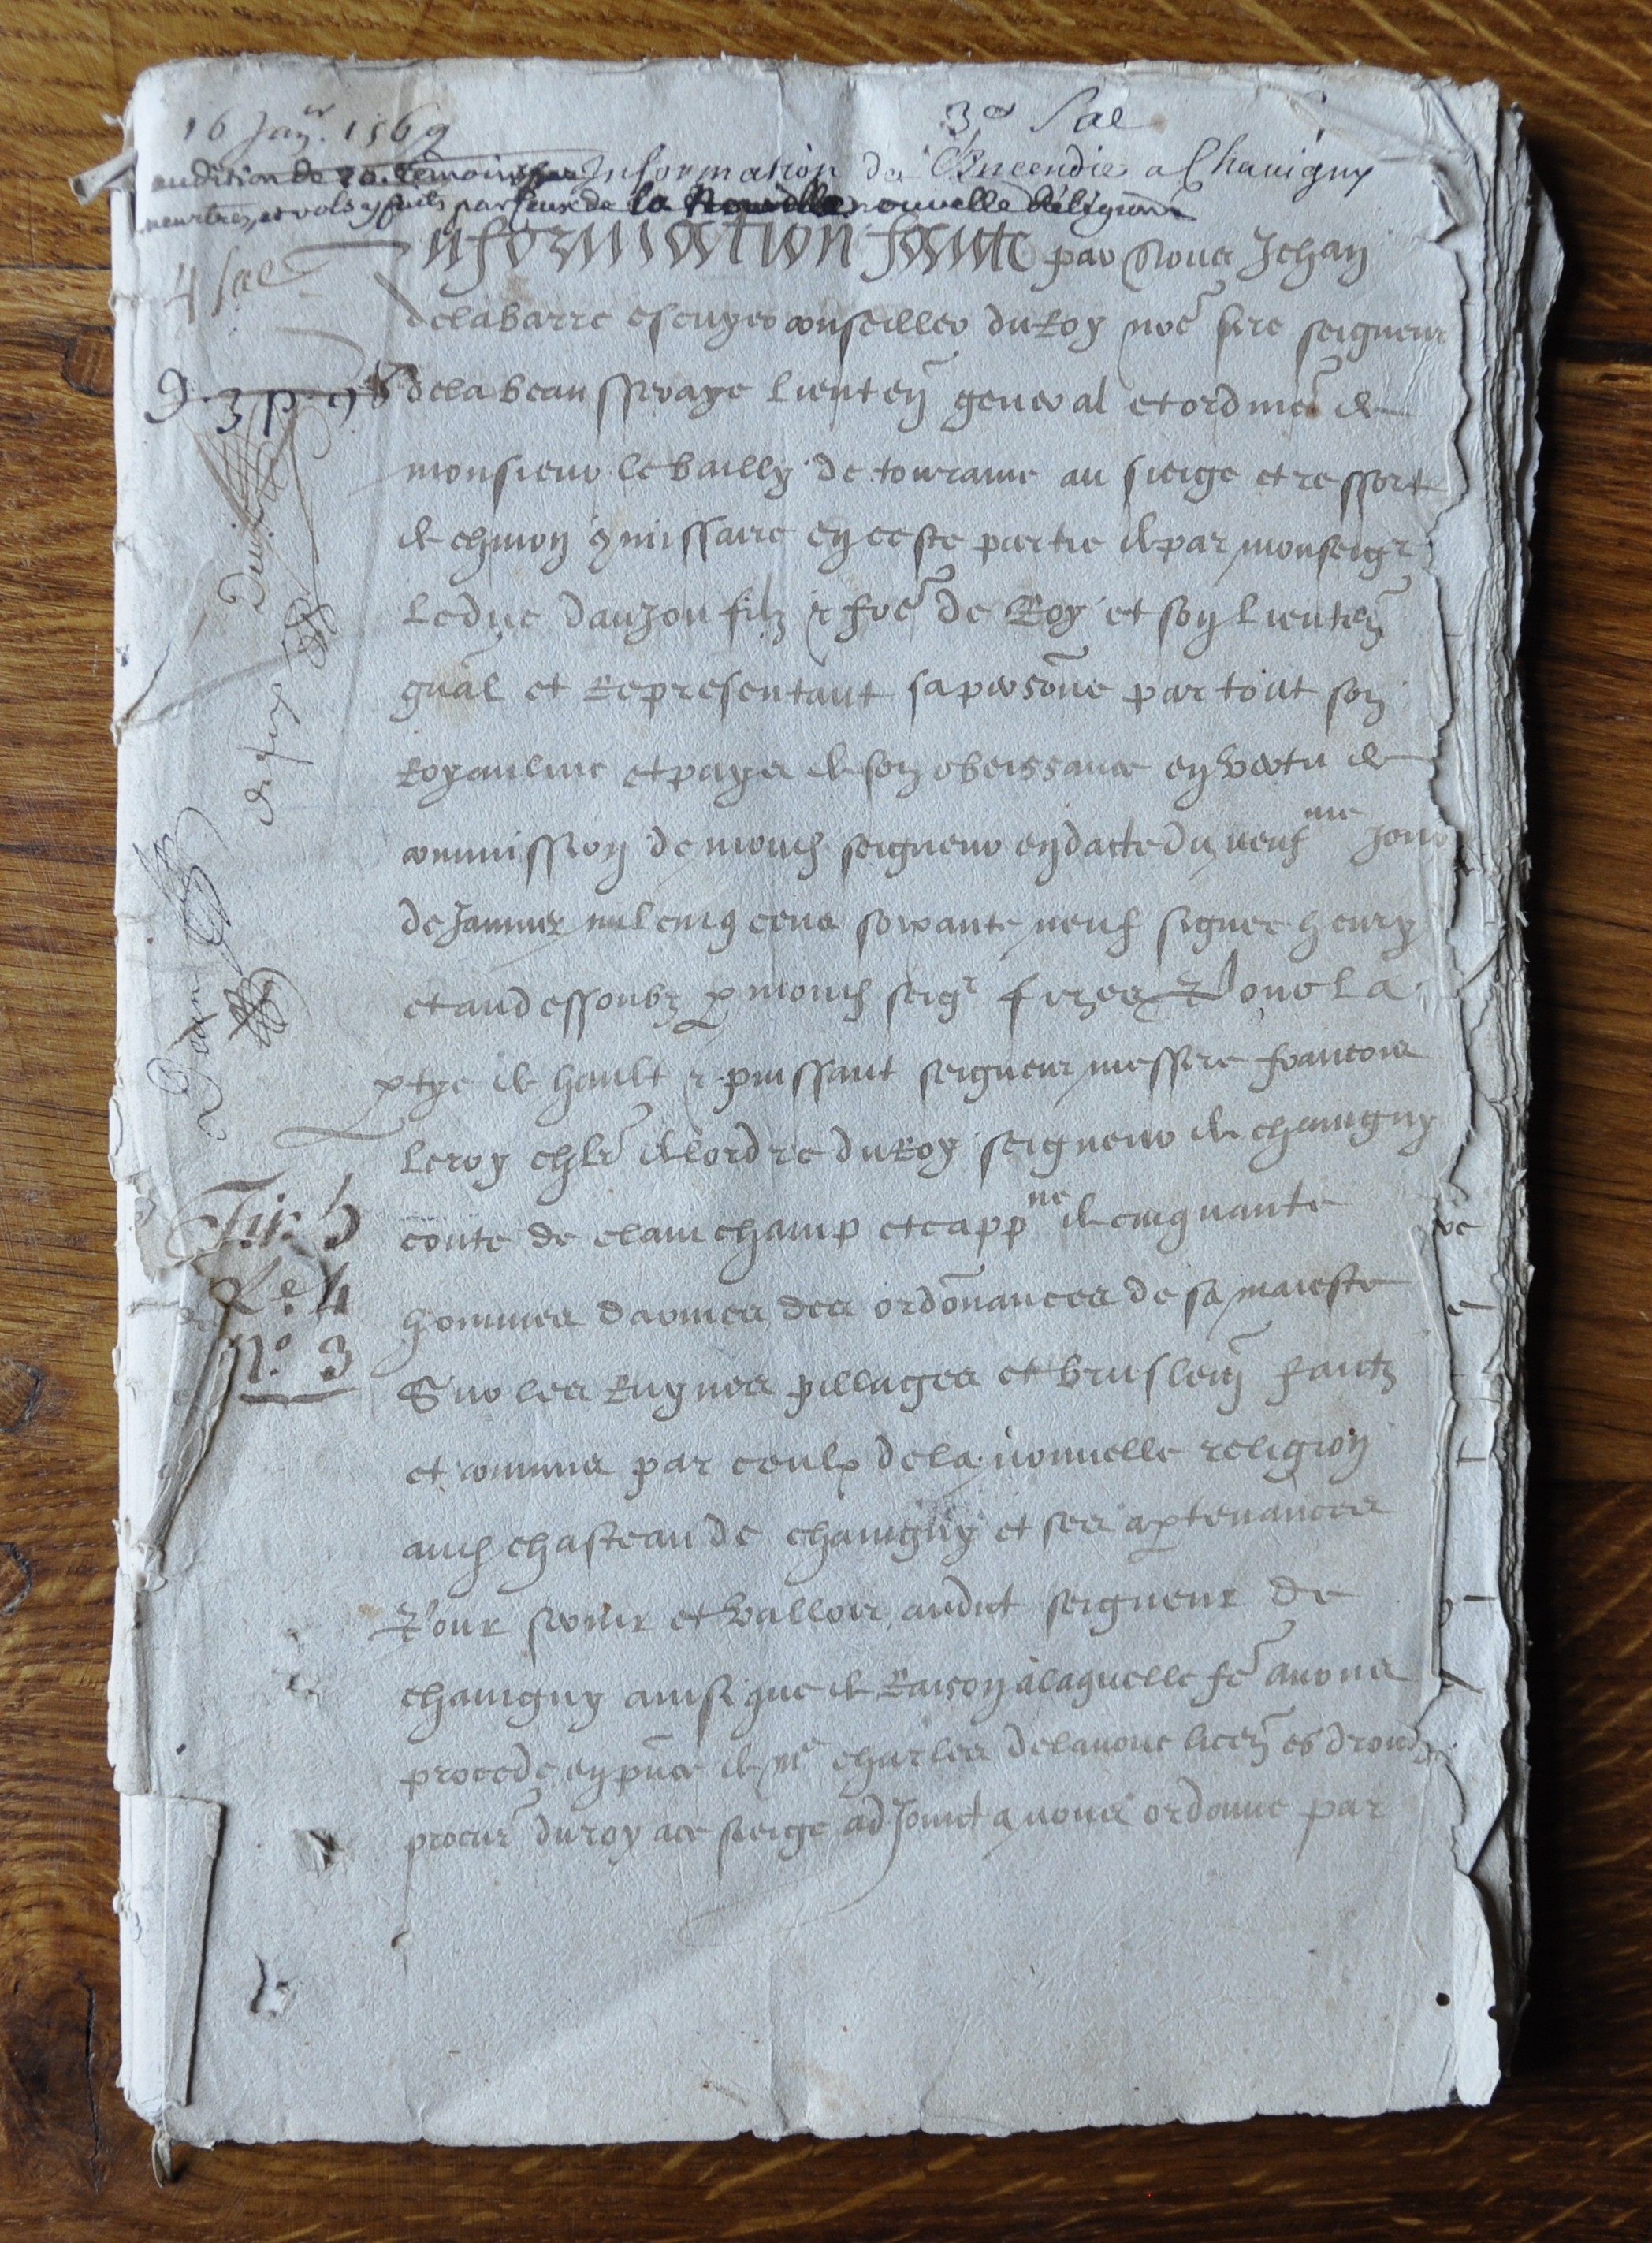 16 Janr. 1569
3e Sac
audition de 20 temoins Information de l'Incendie a Chauigny
meurtres, et vols y faits par ceux de la nouvelle Religion
4 sac
Information faicte par Nous Jehan
delabarre escuyer conseiller du Roy nre sire seigneur
dela beausseraye Lieuten general et ordinre de
monsieur le bailly de touraine au siege et ressort
de chinon commissaire en ceste partie de par monseigr
Le duc danjou filz & frre de Roy et son Lieuten
gnal et Representant sa personne par tout son
Royaulme et pays de son obeissance en vertu de
commission de mond seigneur en datte du neufme Jour
de Januier mil cinq cens soixante neuf signee henry
et au dessoubz p mond seigr fizes Pour La
ptye de hault & puissant seigneur messire francois
Leroy chlr de lordre du Roy seigneur de chauigny
conte de clainchamp et cappne de cinquante
hommes darmes des ordonnances de sa maieste
Sur les Ruynes pillages et bruslem faictz
et commis par ceulx de la nouuelle religion
aud chasteau de chauigny et ses aptenances
Pour seruir et valloir audict seigneur de
chauigny ainsi que de Raison a laquelle fe auons
procede en pnce de me charles delanoue licen es droictz
procur du roy a ce siege adJoinct a nous ordonne par
Tir. h
Le. 4
No. 3